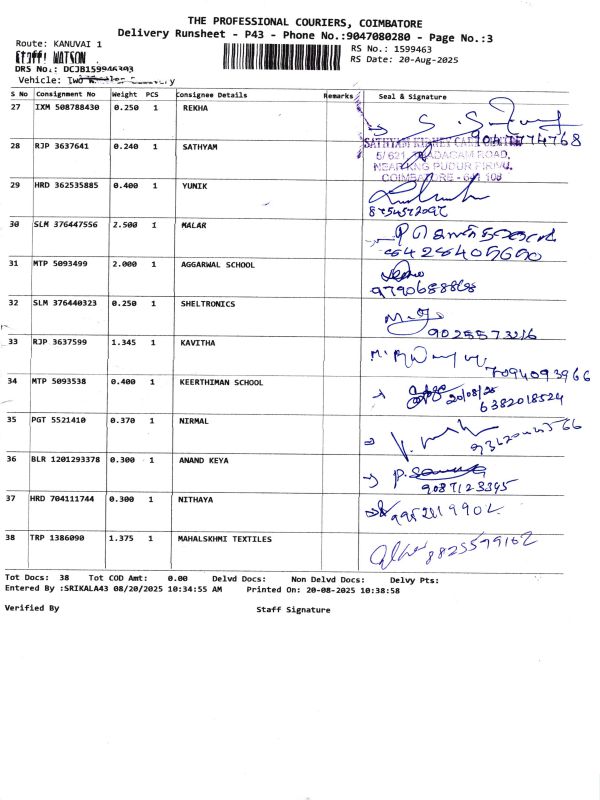 THE PROFESSIONAL COURIERS, COIMBATORE
Delivery Runsheet - P43 - Phone No.:9047080280 - Page No.:3
Route: KANUVAI 1
RS No.: 1599463
Staff: WATSON
RS Date: 20-Aug-2025
DRS No.:
Vehicle: Two
S No Consignment No Weight PCS Consignee Details Remarks Seal & Signature
27 IXM 508788430 0.250 1 REKHA
9047774768
28 RJP 3637641 0.240 1 SATHYAM
SATHYAM KIDNEY CARE
5/621, THADAGAM ROAD,
NEAR KNG PUDUR PIRIVU,
COIMBATORE - 641 108
29 HRD 362535885 0.400 1 YUNIK
30 SLM 376447556 2.500 1 MALAR
31 MTP 5093499 2.000 1 AGGARWAL SCHOOL
9790688868
32 SLM 376440323 0.250 1 SHELTRONICS
9025573216
33 RJP 3637599 1.345 1 KAVITHA
7094093966
34 MTP 5093538 0.400 1 KEERTHIMAN SCHOOL
20/08/25
6382018524
35 PGT 5521410 0.370 1 NIRMAL
36 BLR 1201293378 0.300 1 ANAND KEYA
9087123395
37 HRD 704111744 0.300 1 NITHAYA
38 TRP 1386090 1.375 1 MAHALSKHMI TEXTILES
8825599162
Tot Docs: 38 Tot COD Amt: 0.00 Delvd Docs: Non Delvd Docs: Delvy Pts:
Entered By :SRIKALA43 08/20/2025 10:34:55 AM Printed On: 20-08-2025 10:38:58
Verified By Staff Signature